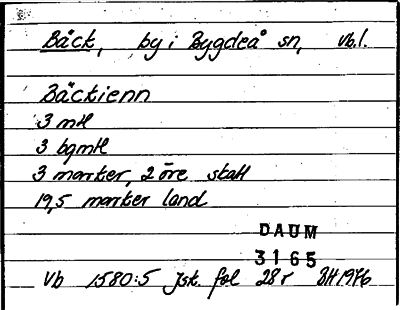 Bäck, by i Bygdeå sn, Vb.l.
Bäckienn
3 mtl
3 bgmtl
3 marker, 2 öre skatt
19,5 marker land
DAUM
3165
Vb 1580:5 Jsk. fol 28r BH 1976